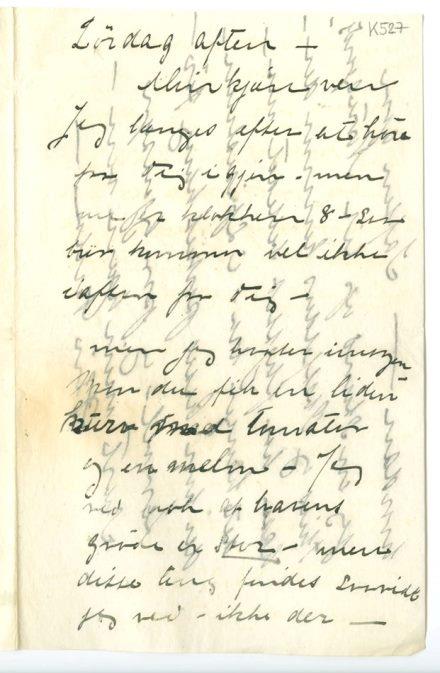 K527
Lördag aften –
Min kjäre ven
Jeg længes efter at höre
fra dig igjen – men
nu er klokken 8 –
kommer vel ikke
iaften fra dig –
men jeg venter imorgen
du fik en liden
kurv med tomater
og en melon – Jeg
ved nok at havens
gröde er stor – men
disse ting findes saavidt
jeg ved – ikke der –